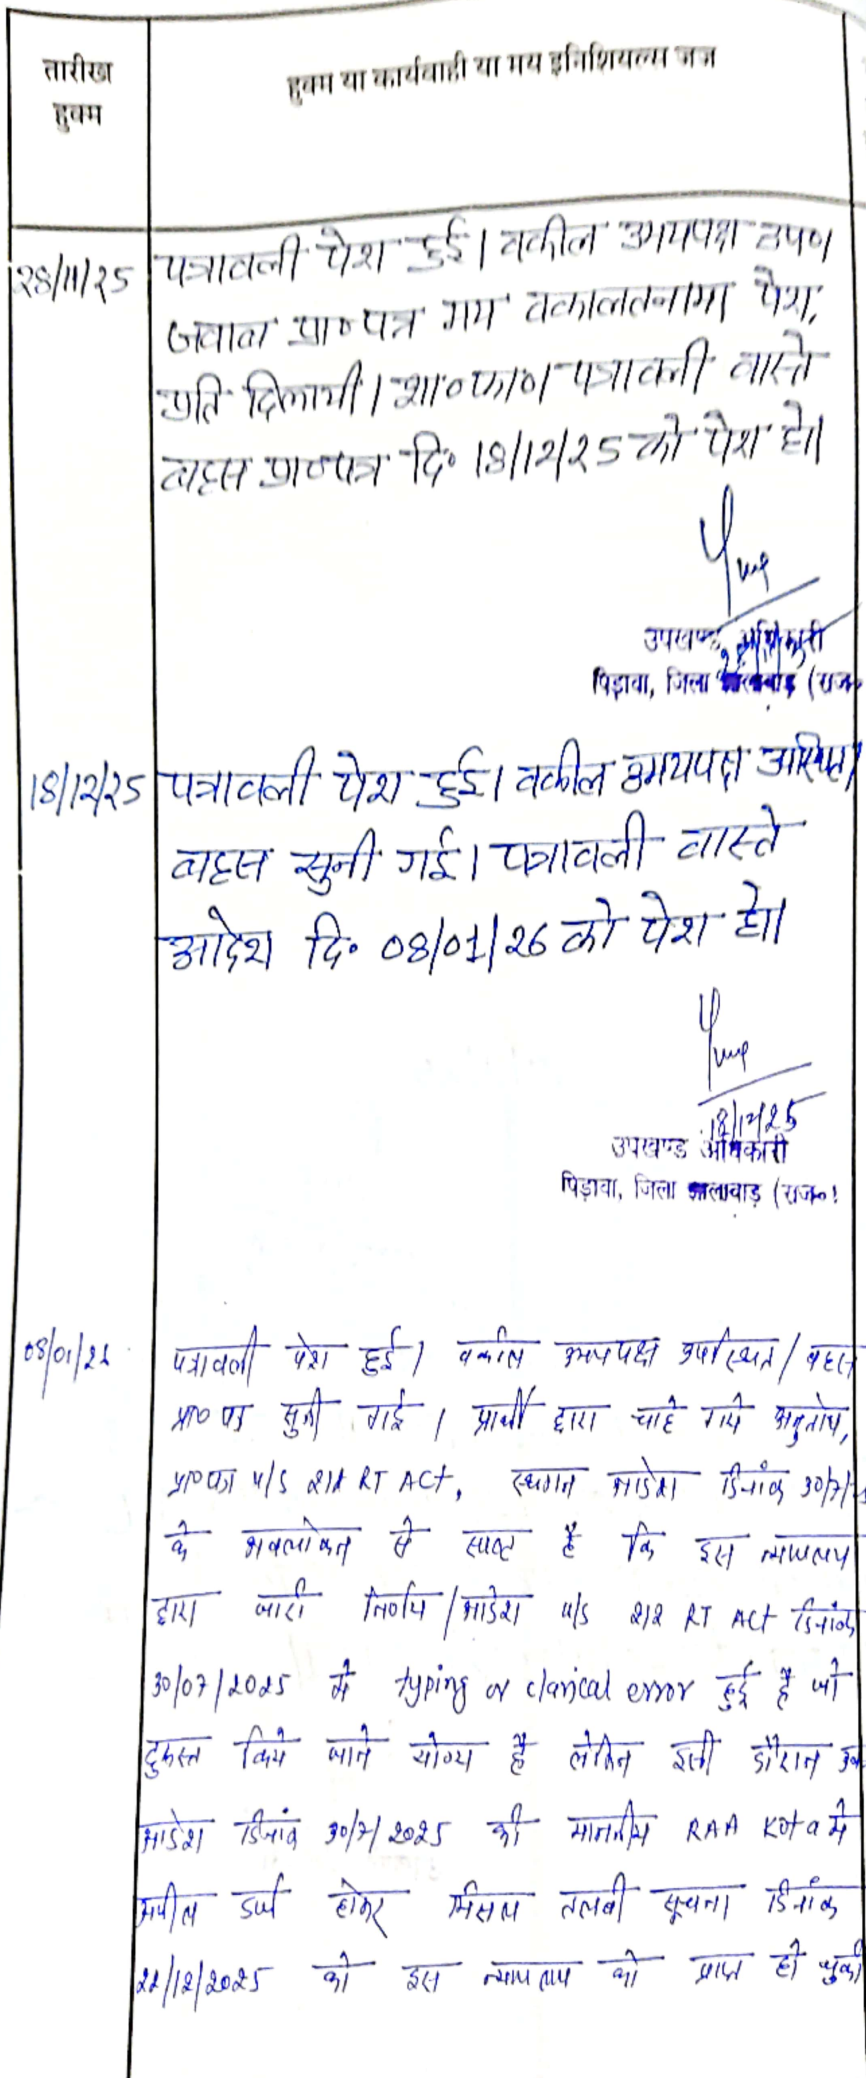 तारीख हुक्म
हुक्म या कार्यवाही या मय इनिशियल्स जज
28/11/25 पत्रावली पेश हुई। वकील उभयपक्ष उप०।
जवाब प्रा० पत्र मय वकालतनामा पेश,
प्रति दिलायी। शा०फा०। पत्रावली वास्ते
बहस प्रा०पत्र दि० 18/12/25 को पेश हो।
उपखण्ड अधिकारी
पिड़ावा, जिला झालावाड़ (राज०
18/12/25 पत्रावली पेश हुई। वकील उभयपक्ष उपस्थित।
बहस सुनी गई। पत्रावली वास्ते
आदेश दि० 08/01/26 को पेश हो।
18/12/25
उपखण्ड अधिकारी
पिड़ावा, जिला झालावाड़ (राज०)
08/01/26 पत्रावली पेश हुई। वकील उभयपक्ष उपस्थित/बहस
प्रा० पत्र सुनी गई। प्रार्थी द्वारा चाहे गये अनुतोष,
प्रा०पत्र u/s 212 RT ACT, स्थगन आदेश दिनांक 30/7/
के अवलोकन से स्पष्ट है कि इस न्यायालय
द्वारा जारी निर्णय/आदेश u/s 212 RT ACT दिनांक
30/07/2025 में typing or clarical error हुई है जो
दुरुस्त किये जाने योग्य है लेकिन इसी दौरान उक्त
आदेश दिनांक 30/7/2025 की माननीय RAA Kota में
अपील दर्ज होकर मिसल तलबी सूचना दिनांक
22/12/2025 को इस न्यायालय को प्राप्त हो चुकी